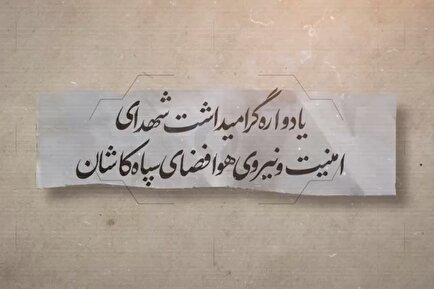 یادواره گرامیداشت شهدای
امنیت و نیروی هوافضای سپاه کاشان